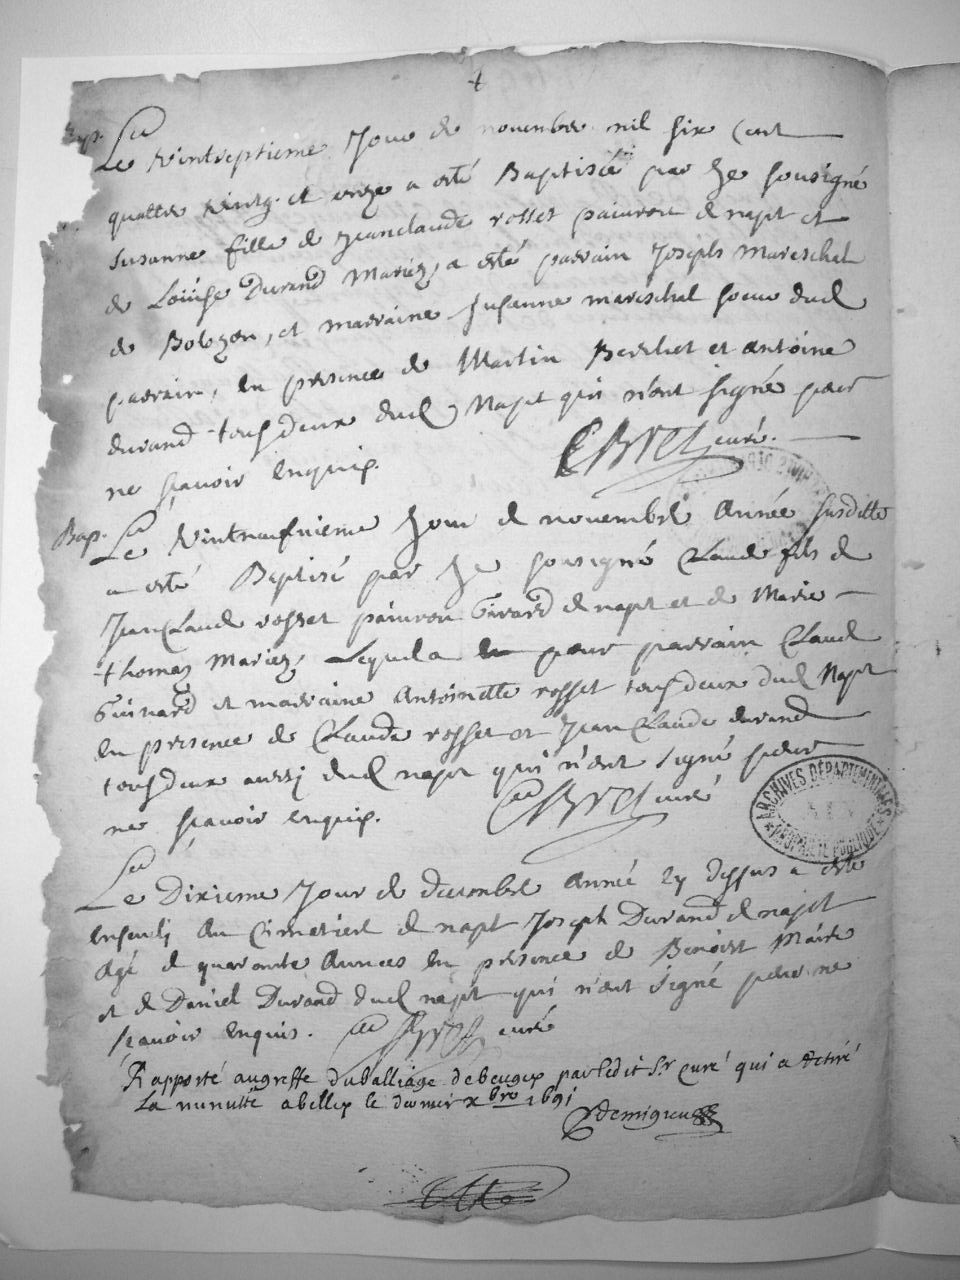 Bap.
Le vintseptieme Jour de novembre mil six cent
quattre vintz et onze a esté Baptisée par Je sousigné
susanne fille de Jeanclaude rosset de napt et
de Loüise Durand Mariez, a esté parrain Joseph Mareschal
de Bolozon, et marraine susanne mareschal soeur dud
parrain, en presence de Martin Berchet et antoine
durand tous deux dud Napt qui n'ont signé pour
ne scavoir enquis.
curé.
Bap.
Le vintneufvieme Jour de novembre Année susditte
a esté Baptisé par Je sousigné Claude fils de
Jean Claude rosset Girard de napt et de Marie
thomas Mariez, Lequel a eu pour parrain Claude
Guinard et marraine Antoinette rosset tous deux dud Napt
en presence de Claude rosset et Jean Claude durand
tous deux aussi dud napt qui n'ont signé pour
ne scavoir enquis.
curé
Le Dixieme Jour de decembre Année cy dessus a esté
enseveli au Cimetiere de napt Joseph Durand de napt
Agé de quarante Annees en presence de Benoist Maire
et de Daniel Durand dud napt qui n'ont signé pour ne
scavoir enquis. curé
Rapporté au greffe du balliage de beugex par ledit Sr curé qui a retiré
La minutte a belley le dernier xbre 1691
ARCHIVES DÉPARTEMENTALES
PROPRIÉTÉ PUBLIQUE